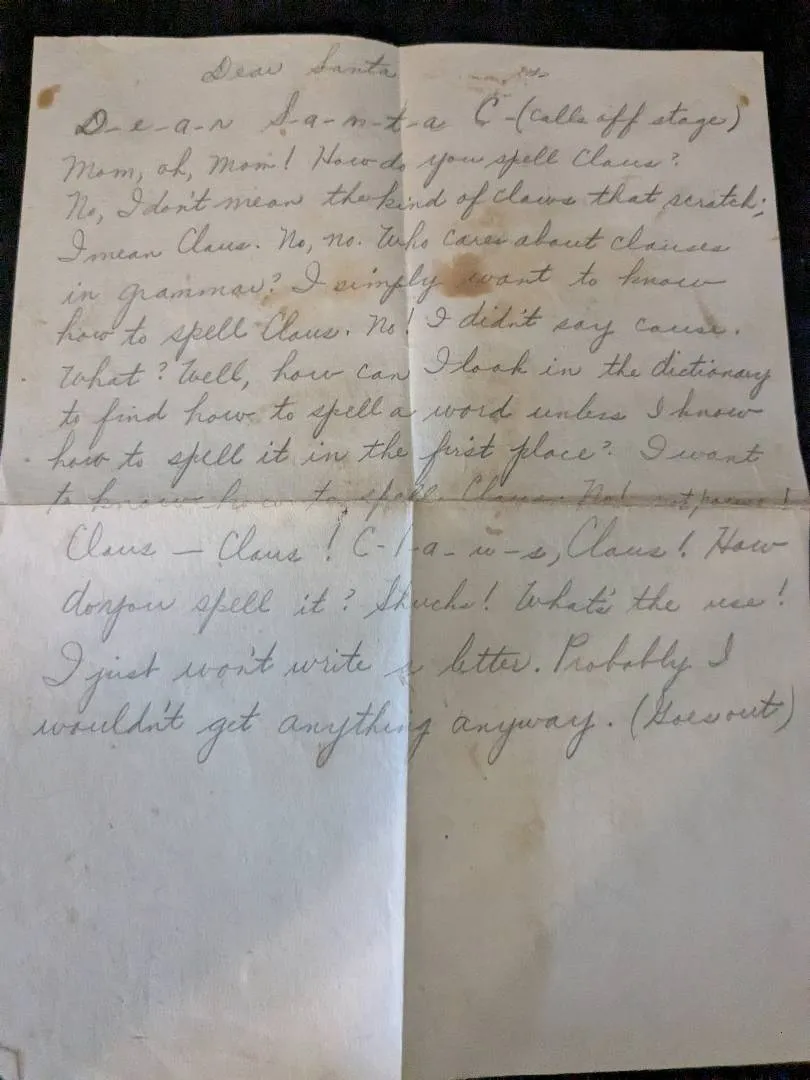 Dear Santa
D-e-a-r S-a-n-t-a C-(calls off stage)
Mom, oh, Mom! How do you spell Claus?
No, I don't mean the kind of claws that scratch;
I mean Claus. No, no. Who cares about clauses
in grammar? I simply want to know
how to spell Claus. No! I didn't say cause.
What? Well, how can I look in the dictionary
to find how to spell a word unless I know
how to spell it in the first place? I want
to know how to spell Claus. No! not
Claus — Claus! C-l-a-u-s, Claus! How
do you spell it? Shucks! What's the use!
I just won't write a letter. Probably I
wouldn't get anything anyway. (Goes out)